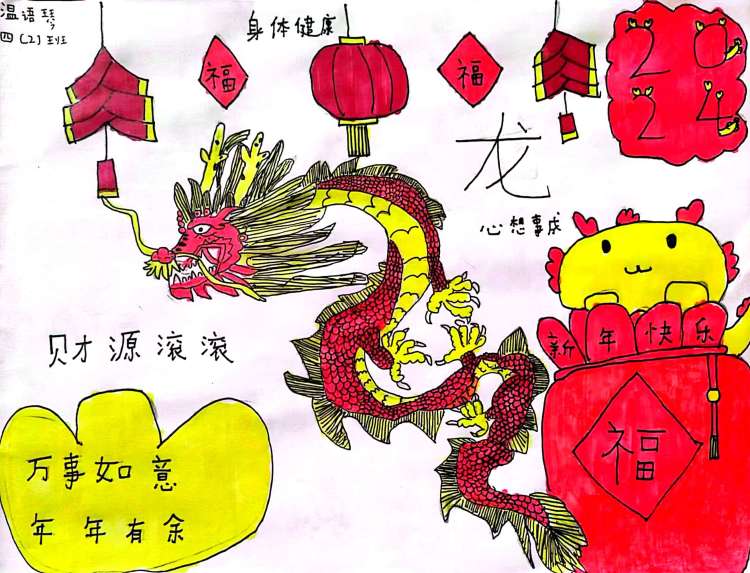 温语琴
四(2)班
身体健康
福
福
20
24
龙
心想事成
财源滚滚
新年快乐
福
万事如意
年年有余